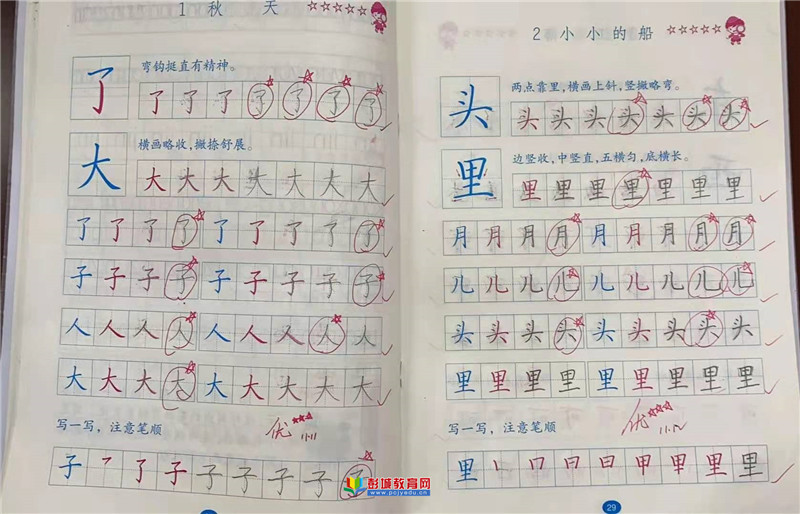 1 秋 天
了
弯钩挺直有精神。
了 了 了 了 了 了 了 了
大
横画略收,撇捺舒展。
大 大 大 大 大 大 大
了 了 了 了 了 了 了 了
子 子 子 子 子 子 子 子
人 人 人 人 人 人 人 人 人
大 大 大 大 大 大 大 大 大
写一写,注意笔顺
优 11.11
子 了 子 子 子 子 子 子
2 小 小 的 船
头
两点靠里,横画上斜,竖撇略弯。
头 头 头 头 头 头 头
里
边竖收,中竖直,五横匀,底横长。
里 里 里 里 里 里 里
月 月 月 月 月 月 月 月
儿 儿 儿 儿 儿 儿 儿 儿
头 头 头 头 头 头 头 头
里 里 里 里 里 里 里 里
写一写,注意笔顺
优
里 丨 口 曰 日 甲 甲 里 里
29
彭城教育网
www.pcjyedu.cn